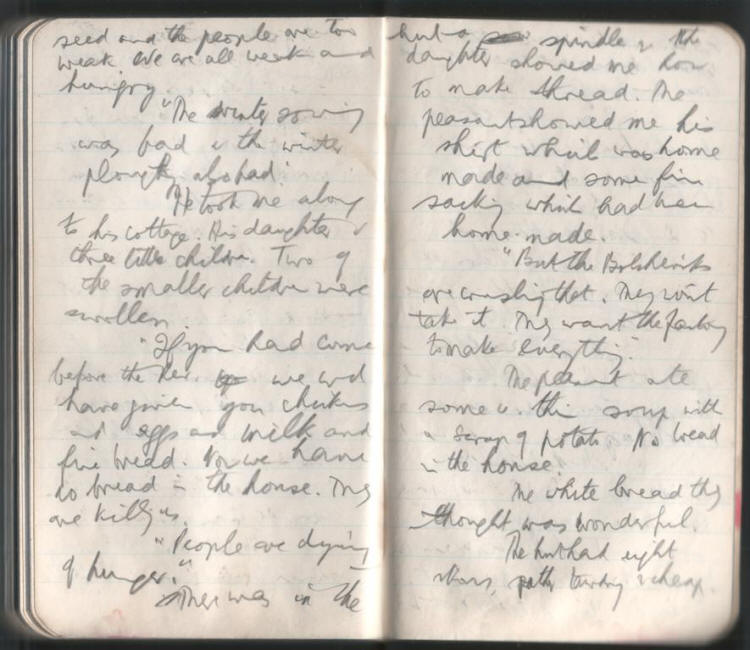 seed and the people are too
weak We are all weak and
hungry.
"The winter sowing
was bad & the winter
ploughg also bad."
He took me along
to his cottage. His daughter &
three little children. Two of
the smaller children were
swollen
"If you had come
before the Rev. we wd
have given you chickens
and eggs and milk and
fine bread. Now we have
no bread in the house. They
are killg us.
"People are dying
of hunger."
There was in the
hut a spindle & the
daughter showed me how
to make thread. The
peasant showed me his
shirt which was home
made and some fine
sacking which had been
home-made.
"But the Bolsheviks
are crushing that. They won't
take it. They want the factory
to make everything."
The peasant ate
some thin soup with
a scrap of potato No bread
in the house.
The white bread they
thought was wonderful.
The hut had eight